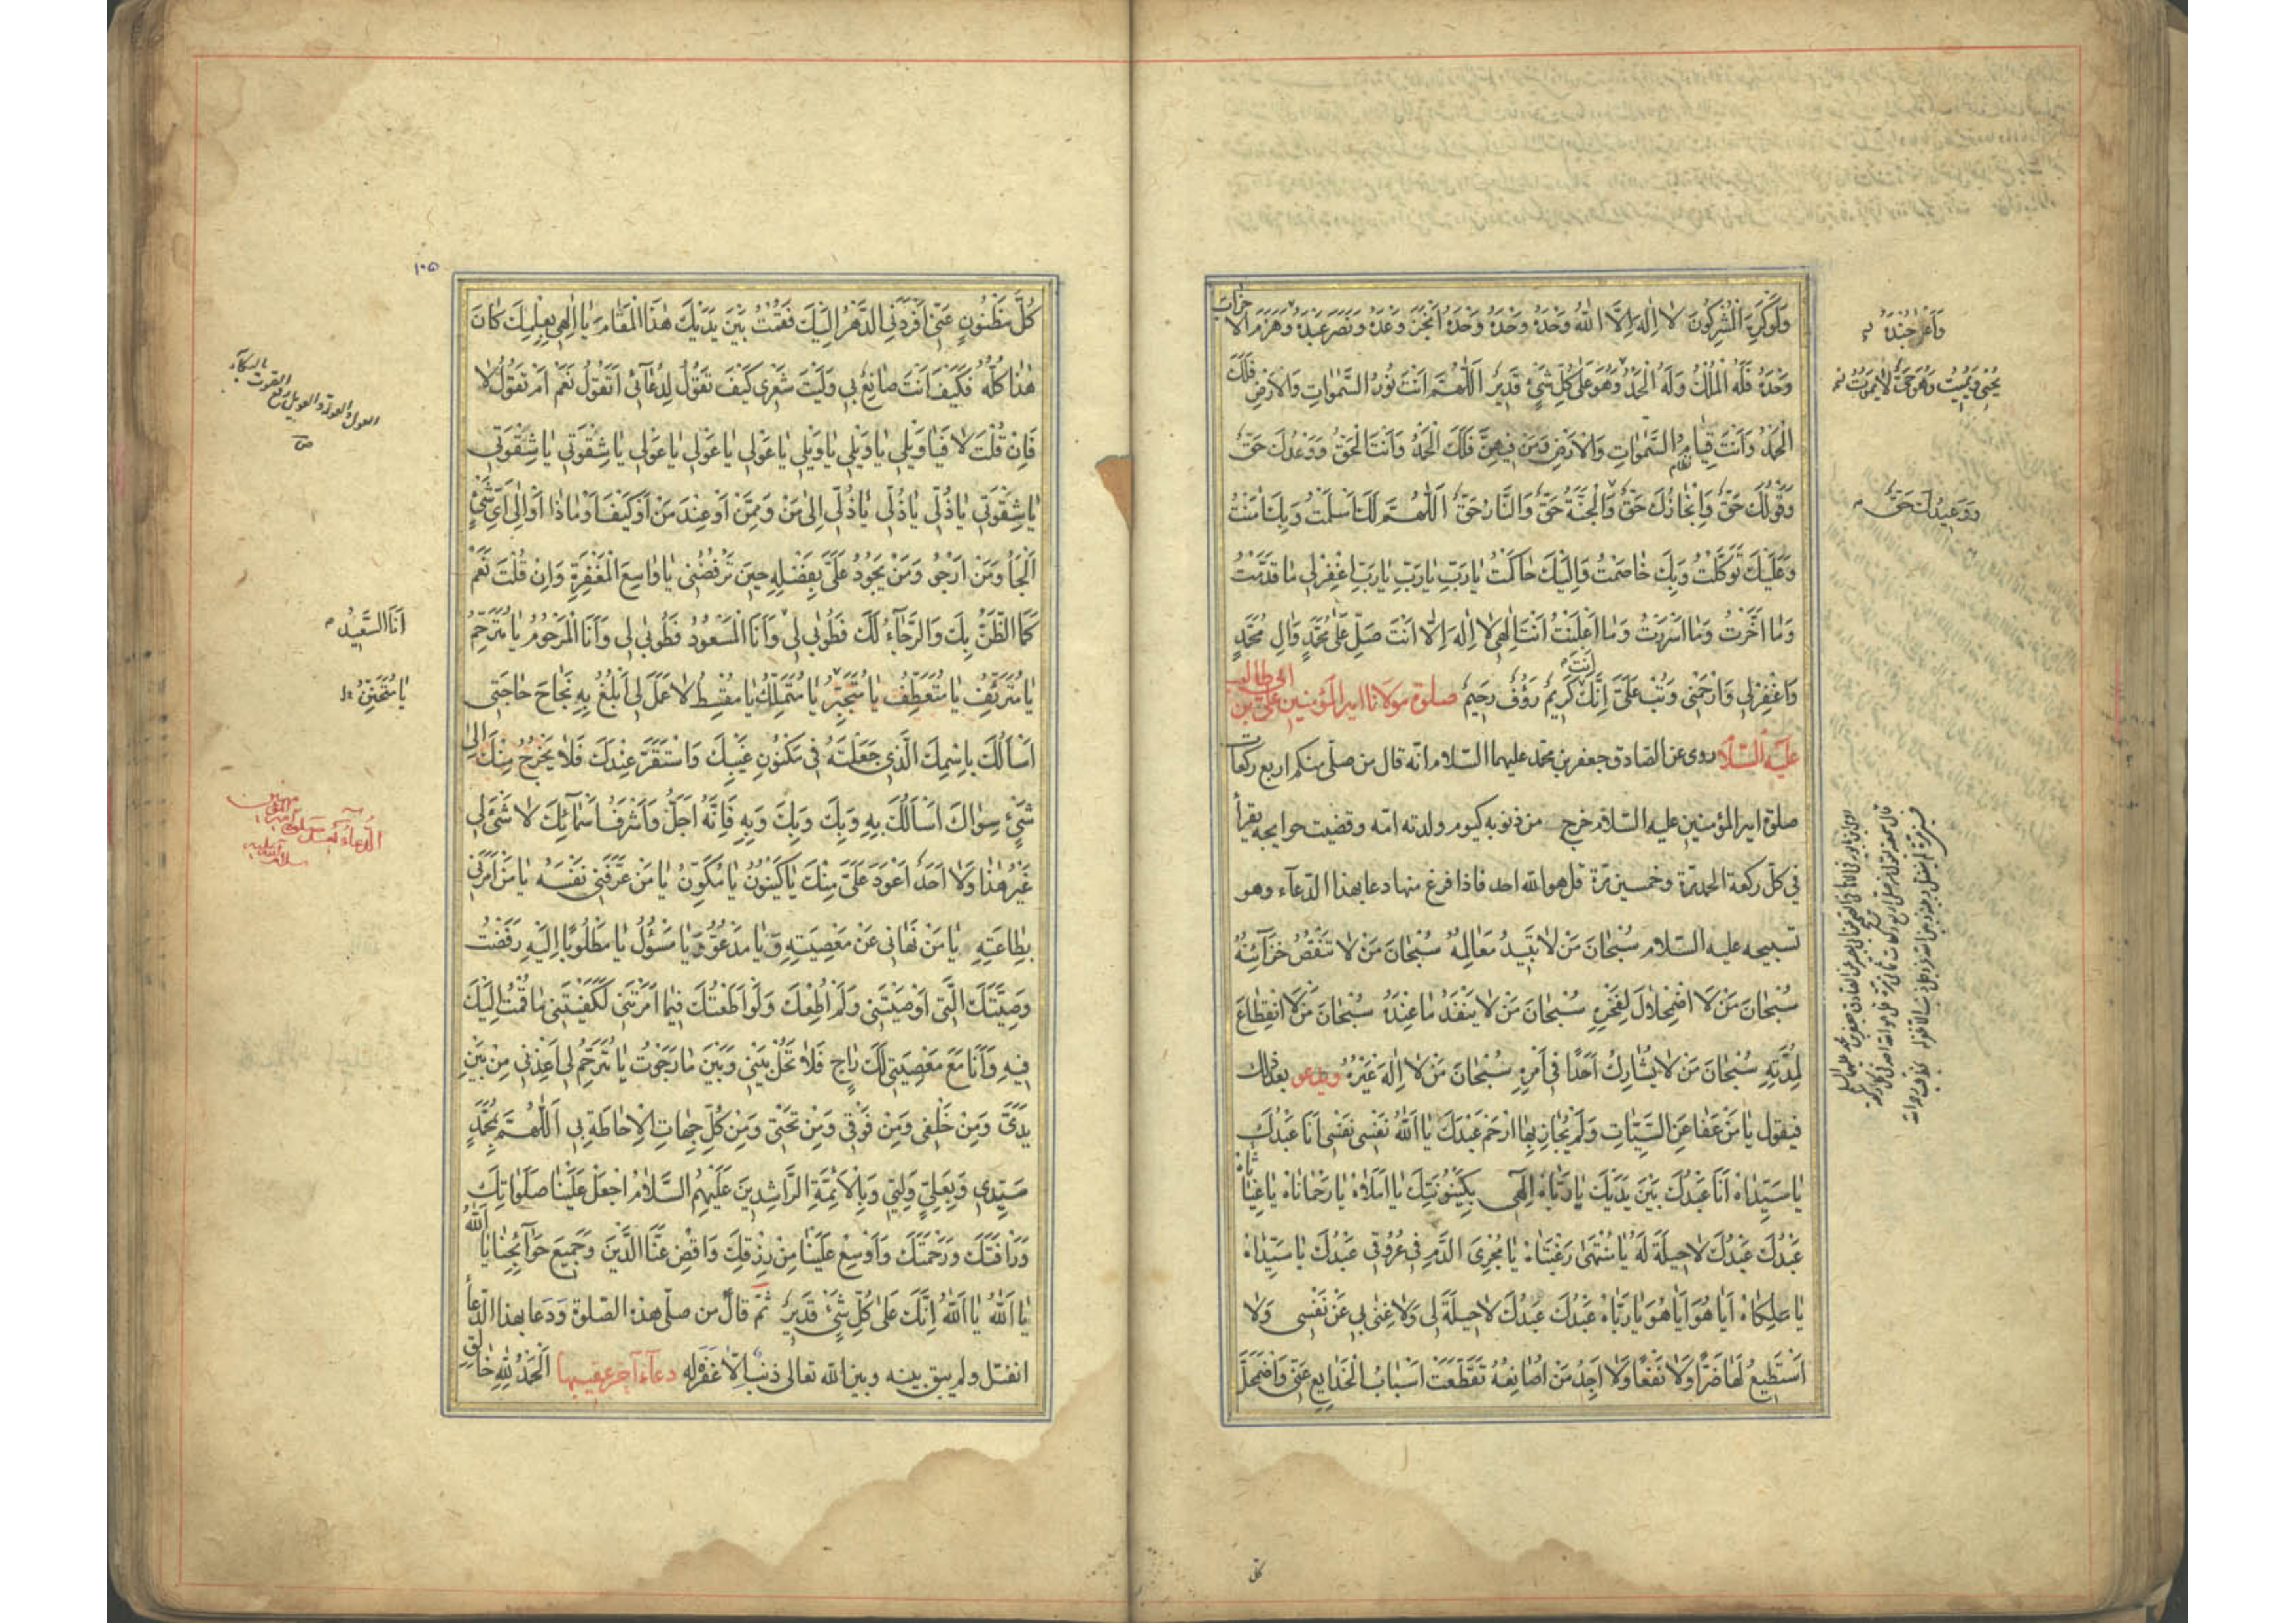 وَلَوْ كَرِهَ الْمُشْرِكُونَ لَا اِلٰهَ اِلَّا اللّٰهُ وَحْدَهُ وَحْدَهُ وَحْدَهُ اَنْجَزَ وَعْدَهُ وَنَصَرَ عَبْدَهُ وَهَزَمَ الْاَحْزٰابَ
وَاَعَزَّ جُنْدَهُ
وَحْدَهُ فَلَهُ الْمُلْكُ وَلَهُ الْحَمْدُ وَهُوَ عَلٰى كُلِّ شَيْءٍ قَدِيرٌ اَللّٰهُمَّ اَنْتَ نُورُ السَّمٰوَاتِ وَالْاَرْضِ فَلَكَ
يُحْيِي وَيُمِيتُ وَهُوَ حَيٌّ لَا يَمُوتُ
الْحَمْدُ وَاَنْتَ قِيٰامُ السَّمٰوَاتِ وَالْاَرْضِ وَمَنْ فِيهِنَّ فَلَكَ الْحَمْدُ وَاَنْتَ الْحَقُّ وَوَعْدُكَ حَقٌّ
وَقَوْلُكَ حَقٌّ وَاِنْجٰازُكَ حَقٌّ وَالْجَنَّةُ حَقٌّ وَالنَّارُ حَقٌّ اَللّٰهُمَّ لَكَ اَسْلَمْتُ وَبِكَ اٰمَنْتُ
وَوَعِيدُكَ حَقٌّ
وَعَلَيْكَ تَوَكَّلْتُ وَبِكَ خٰاصَمْتُ وَاِلَيْكَ حٰاكَمْتُ يٰا رَبِّ يٰا رَبِّ يٰا رَبِّ اغْفِرْ لِي مٰا قَدَّمْتُ
وَمٰا اَخَّرْتُ وَمٰا اَسْرَرْتُ وَمٰا اَعْلَنْتُ اَنْتَ اِلٰهِي لَا اِلٰهَ اِلَّا اَنْتَ صَلِّ عَلٰى مُحَمَّدٍ وَاٰلِ مُحَمَّدٍ
وَاغْفِرْ لِي وَارْحَمْنِي وَتُبْ عَلَيَّ اِنَّكَ اَنْتَ كَرِيمٌ رَؤُفٌ رَحِيمٌ صلوة مولانا امير المؤمنين على بن ابى طالب
عليه السّلام روى عن الصّادق جعفر بن محمّد عليهما السّلام انّه قال من صلّى منكم اربع ركعات
صلوة امير المؤمنين عليه السّلام خرج من ذنوبه كيوم ولدته امّه وقضيت حوايجه يقرأ
في كلّ ركعة الحمد مرّة وخمسين مرّة قل هو اللّه احد فاذا فرغ منها دعا بهذا الدّعآء وهو
تسبيحه عليه السّلام سُبْحٰانَ مَنْ لَا تَبِيدُ مَعٰالِمُهُ سُبْحٰانَ مَنْ لَا تَنْقُصُ خَزَآئِنُهُ
سُبْحٰانَ مَنْ لَا اضْمِحْلَالَ لِفَخْرِهِ سُبْحٰانَ مَنْ لَا يَنْفَدُ مٰا عِنْدَهُ سُبْحٰانَ مَنْ لَا انْقِطٰاعَ
لِمُدَّتِهِ سُبْحٰانَ مَنْ لَا يُشٰارِكُ اَحَدًا فِي اَمْرِهِ سُبْحٰانَ مَنْ لَا اِلٰهَ غَيْرُهُ ويدعو بعد ذلك
فيقول يٰا مَنْ عَفٰا عَنِ السَّيِّئٰاتِ وَلَمْ يُجٰازِ بِهٰا ارْحَمْ عَبْدَكَ يٰا اَللّٰهُ نَفْسِي نَفْسِي اَنَا عَبْدُكَ
يٰا سَيِّدٰاهُ اَنَا عَبْدُكَ بَيْنَ يَدَيْكَ يٰا رَبّٰاهُ اِلٰهِي بِكَيْنُونَتِكَ يٰا اَمَلَاهُ يٰا رَحْمٰانٰاهُ يٰا غِيٰاثٰاهُ
عَبْدُكَ عَبْدُكَ لَا حِيلَةَ لَهُ يٰا مُنْتَهٰى رَغْبَتٰاهُ يٰا مُجْرِيَ الدَّمِ فِي عُرُوقِي عَبْدُكَ يٰا سَيِّدٰاهُ
يٰا مٰالِكٰاهُ اَيٰا هُوَ اَيٰا هُوَ يٰا رَبّٰاهُ عَبْدُكَ عَبْدُكَ لَا حِيلَةَ لِي وَلَا غِنٰى بِي عَنْ نَفْسِي وَلَا
اَسْتَطِيعُ لَهٰا ضَرًّا وَلَا نَفْعًا وَلَا اَجِدُ مَنْ اُصٰانِعُهُ تَقَطَّعَتْ اَسْبٰابُ الْخَدٰايِعِ عَنِّي وَاضْمَحَلَّ
١٠٥
كُلُّ مَظْنُونٍ عَنِّي اَفْرَدَنِي الدَّهْرُ اِلَيْكَ فَقُمْتُ بَيْنَ يَدَيْكَ هٰذَا الْمَقٰامَ يٰا اِلٰهِي بِعِلْمِكَ كٰانَ
هٰذٰا كُلُّهُ فَكَيْفَ اَنْتَ صٰانِعٌ بِي وَلَيْتَ شِعْرِي كَيْفَ تَقُولُ لِدُعٰآئِي اَتَقُولُ نَعَمْ اَمْ تَقُولُ لَا
فَاِنْ قُلْتَ لَا فَيٰا وَيْلِي يٰا وَيْلِي يٰا وَيْلِي يٰا عَوْلِي يٰا عَوْلِي يٰا عَوْلِي يٰا شِقْوَتِي يٰا شِقْوَتِي
يٰا شِقْوَتِي يٰا ذُلِّي يٰا ذُلِّي يٰا ذُلِّي اِلٰى مَنْ وَمِمَّنْ اَوْ عِنْدَ مَنْ اَوْ كَيْفَ اَوْ مٰاذٰا اَوْ اِلٰى اَيِّ شَيْءٍ
اَلْجَأُ وَمَنْ اَرْجُو وَمَنْ يَجُودُ عَلَيَّ بِفَضْلِهِ حِينَ تَرْفُضُنِي يٰا وٰاسِعَ الْمَغْفِرَةِ وَاِنْ قُلْتَ نَعَمْ
كَمَا الظَّنُّ بِكَ وَالرَّجٰآءُ لَكَ فَطُوبٰى لِي وَاَنَا الْمَسْعُودُ فَطُوبٰى لِي وَاَنَا الْمَرْحُومُ يٰا مُتَرَحِّمُ
اَنَا السَّعِيدُ
يٰا مُتَرَئِّفُ يٰا مُتَعَطِّفُ يٰا مُتَجَبِّرُ يٰا مُتَمَلِّكُ يٰا مُقْسِطُ لَا عَمَلَ لِي اَبْلُغُ بِهِ نَجٰاحَ حٰاجَتِي
يٰا مُتَحَنِّنُ
اَسْاَلُكَ بِاسْمِكَ الَّذِي جَعَلْتَهُ فِي مَكْنُونِ غَيْبِكَ وَاسْتَقَرَّ عِنْدَكَ فَلَا يَخْرُجُ مِنْكَ اِلٰى
شَيْءٍ سِوٰاكَ اَسْاَلُكَ بِهِ وَبِكَ وَبِكَ وَبِهِ فَاِنَّهُ اَجَلُّ وَاَشْرَفُ اَسْمٰآئِكَ لَا شَيْءَ لِي
غَيْرُ هٰذٰا وَلَا اَحَدَ اَعْوَدُ عَلَيَّ مِنْكَ يٰا كَيْنُونُ يٰا مُكَوِّنُ يٰا مَنْ عَرَّفَنِي نَفْسَهُ يٰا مَنْ اَمَرَنِي
بِطٰاعَتِهِ يٰا مَنْ نَهٰانِي عَنْ مَعْصِيَتِهِ وَيٰا مَدْعُوُّ وَيٰا مَسْؤُلُ يٰا مَطْلُوبًا اِلَيْهِ رَفَضْتُ
وَصِيَّتَكَ الَّتِي اَوْصَيْتَنِي وَلَمْ اُطِعْكَ وَلَوْ اَطَعْتُكَ فِيمٰا اَمَرْتَنِي لَكَفَيْتَنِي مٰا قُمْتُ اِلَيْكَ
فِيهِ وَاَنَا مَعَ مَعْصِيَتِي لَكَ رٰاجٍ فَلَا تَحُلْ بَيْنِي وَبَيْنَ مٰا رَجَوْتُ يٰا مُتَرَحِّمُ لِي اَعِذْنِي مِنْ بَيْنِ
يَدَيَّ وَمِنْ خَلْفِي وَمِنْ فَوْقِي وَمِنْ تَحْتِي وَمِنْ كُلِّ جِهٰاتِ الْاِحٰاطَةِ بِي اَللّٰهُمَّ بِمُحَمَّدٍ
سَيِّدِي وَبِعَلِيٍّ وَلِيِّي وَبِالْاَئِمَّةِ الرَّاشِدِينَ عَلَيْهِمُ السَّلَامُ اجْعَلْ عَلَيْنٰا صَلَوٰاتِكَ
وَرَاْفَتَكَ وَرَحْمَتَكَ وَاَوْسِعْ عَلَيْنٰا مِنْ رِزْقِكَ وَاقْضِ عَنَّا الدَّيْنَ وَجَمِيعَ حَوٰآئِجِنٰا يٰا اَللّٰهُ
يٰا اَللّٰهُ يٰا اَللّٰهُ اِنَّكَ عَلٰى كُلِّ شَيْءٍ قَدِيرٌ ثُمَّ قالَ من صلّى هذه الصّلوة وَدَعا بهذا الدّعآء
انفتل ولم يبق بينه وبين اللّه تعالى ذنب اِلّا غفره له دعآء آخر عقيبها اَلْحَمْدُ لِلّٰهِ خٰالِقِ